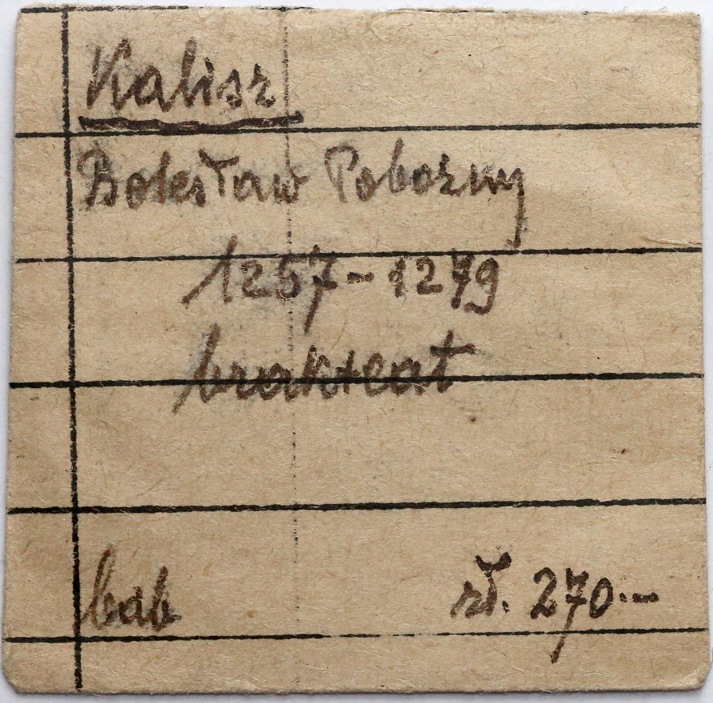 Kalisz
Bolesław Pobożny
1257-1279
brakteat
bab zł. 270.-